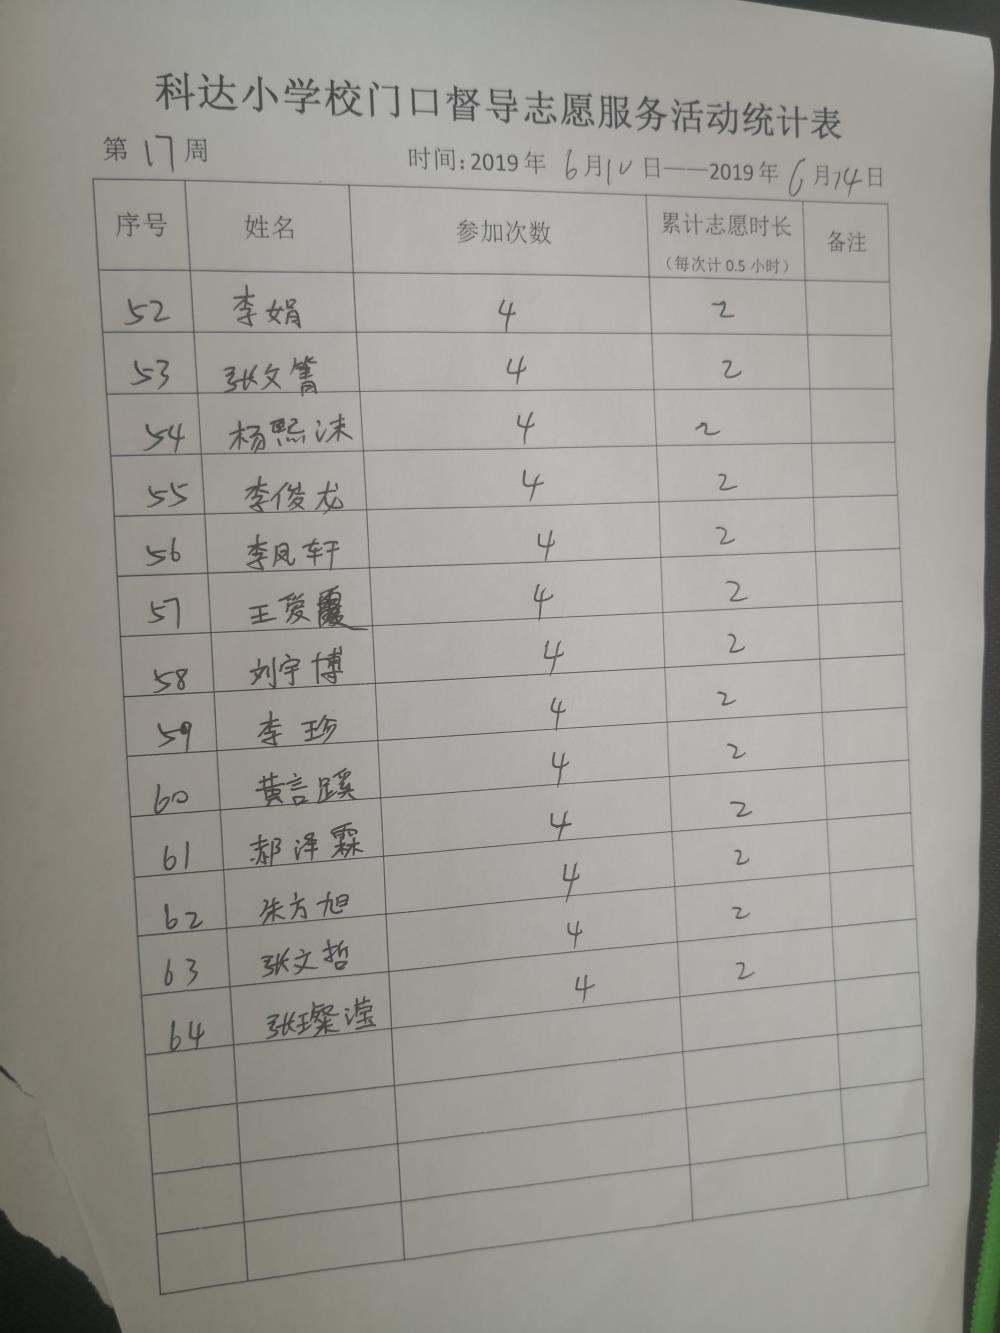 科达小学校门口督导志愿服务活动统计表
第 17 周 时间: 2019 年 6 月 10 日——2019 年 6 月 14 日
序号 姓名 参加次数 累计志愿时长 备注
（每次计 0.5 小时）
52 李娟 4 2
53 张文箐 4 2
54 杨熙涞 4 2
55 李俊龙 4 2
56 李凤轩 4 2
57 王爱霞 4 2
58 刘宇博 4 2
59 李珍 4 2
60 黄言蹊 4 2
61 郝泽霖 4 2
62 朱方旭 4 2
63 张文哲 4 2
64 张璨滢 4 2